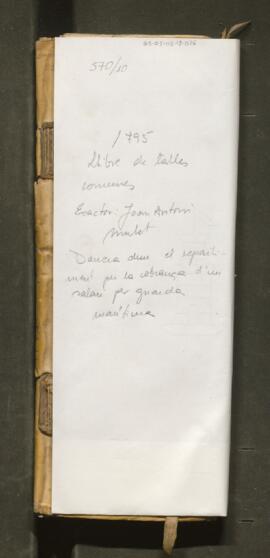 570/10
1795
Llibre de talles
comunes
Exactor: Joan Antoni
Darrera duu el reparti-
ment per la cobrança d'un
salari per guarda
marítima